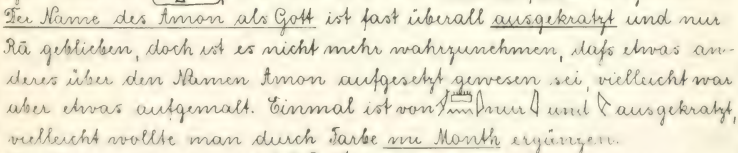 Der Name des Amon als Gott ist fast überall ausgekratzt und nur
Rā geblieben, doch ist es nicht mehr wahrzunehmen, dafs etwas an-
deres über den Namen Amon aufgesetzt gewesen sei, vielleicht war
aber etwas aufgemalt. Einmal ist von 𓇋𓏠𓈖𓇋 nur 𓇋 und 𓇋 ausgekratzt,
vielleicht wollte man durch Farbe mn Month ergänzen.